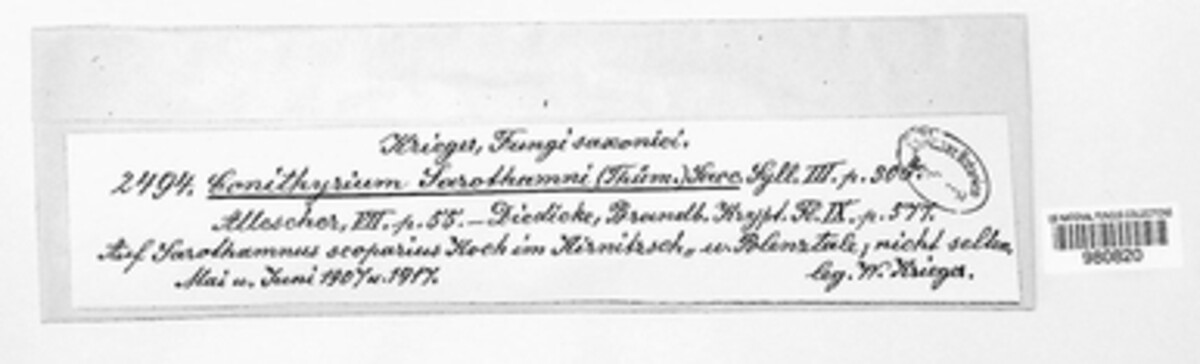 Krieger, Fungi saxonici.
2494. Conithyrium Sarothamni (Thüm.) Sacc. Syll. III. p. 306.
Allescher, VII. p. 55. – Diedicke, Brandb. Krypt. Fl. IX. p. 577.
Auf Sarothamnus scoparius Koch im Kirnitzsch- u. Polenztale, nicht selten.
Mai u. Juni 1907 u. 1917.
leg. W. Krieger.
US NATIONAL FUNGUS COLLECTIONS
980820